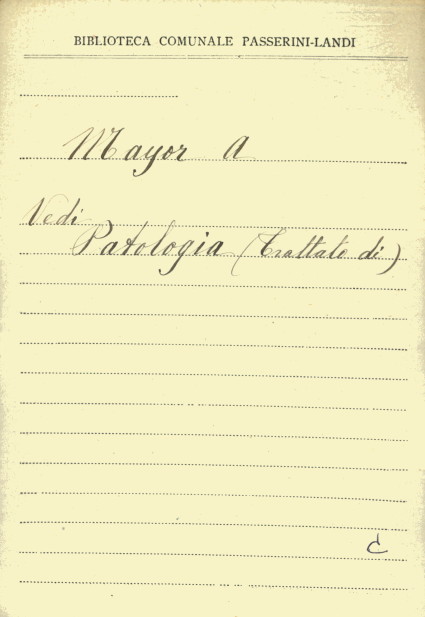 BIBLIOTECA COMUNALE PASSERINI-LANDI
Mayor A
Vedi
Patologia (Trattato di)